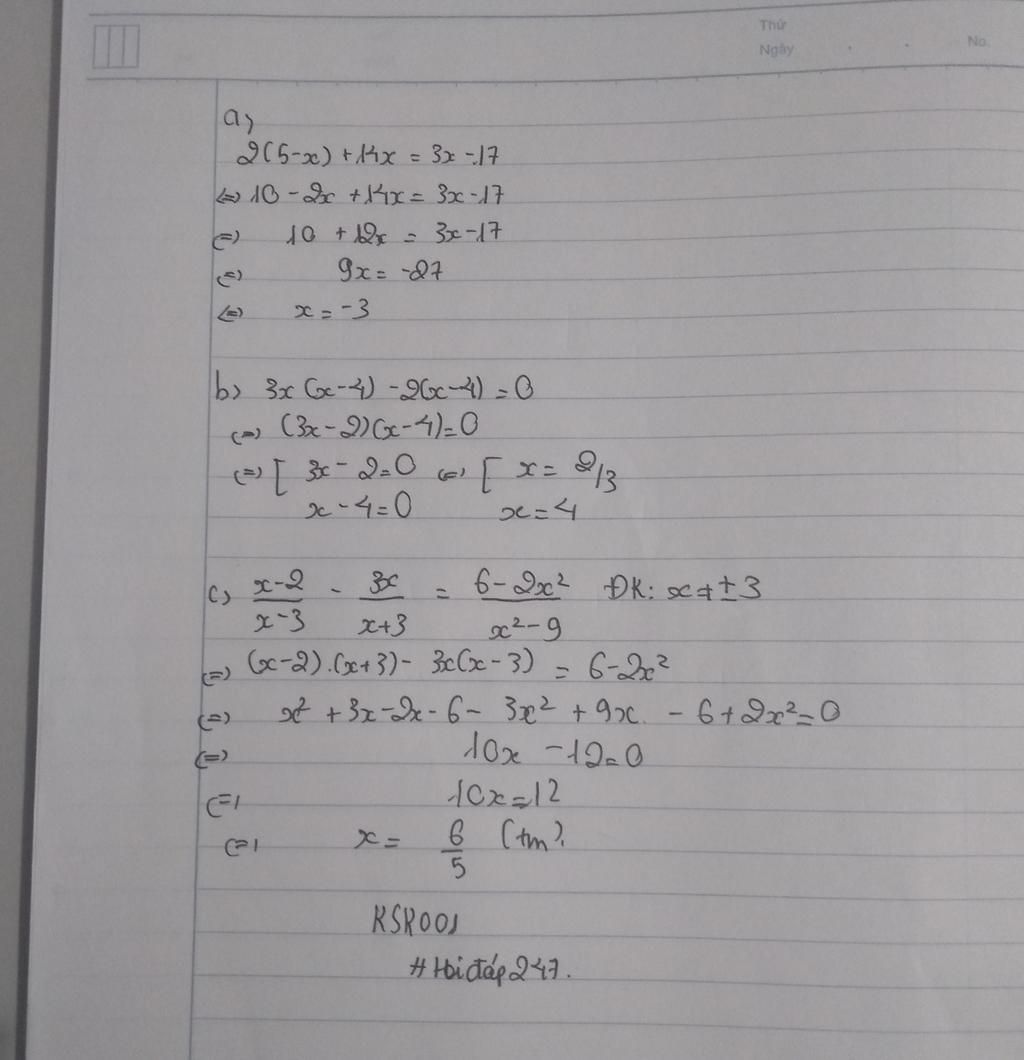 Thứ
Ngày . . No.
a)
2(5-x) + 14x = 3x - 17
<=> 10 - 2x + 14x = 3x - 17
<=> 10 + 12x = 3x - 17
<=> 9x = -27
<=> x = -3
b) 3x(x-4) - 2(x-4) = 0
<=> (3x-2)(x-4) = 0
<=> [ 3x - 2 = 0 <=> [ x = 2/3
x - 4 = 0 x = 4
c) (x-2)/(x-3) - 3x/(x+3) = (6-2x²)/(x²-9) ĐK: x ≠ ± 3
<=> (x-2).(x+3) - 3x(x-3) = 6-2x²
<=> x² + 3x - 2x - 6 - 3x² + 9x - 6 + 2x² = 0
<=> 10x - 12 = 0
<=> 10x = 12
<=> x = 6/5 (tm).
KSR001
# Hỏi đáp 247.